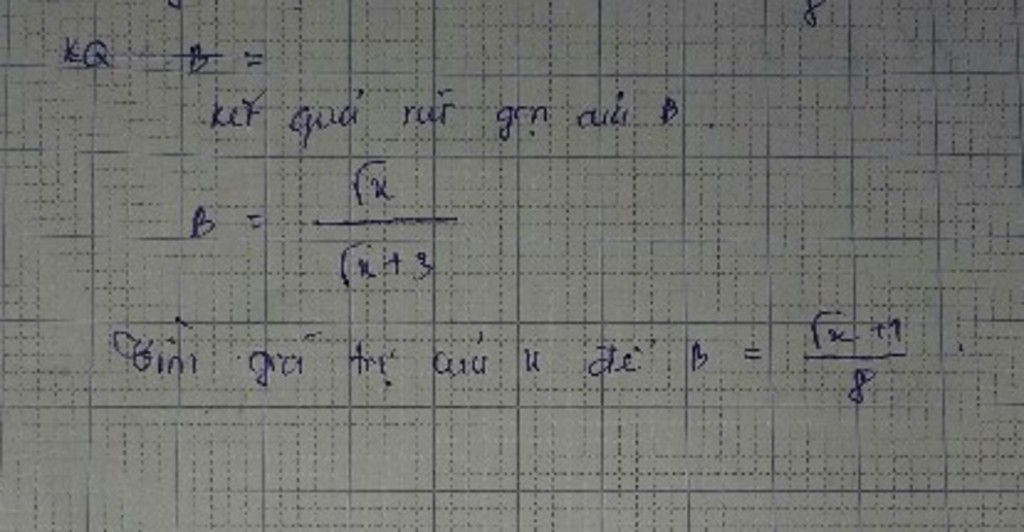 KQ B =
kết quả rút gọn của B.
B = √x / √x + 3
Tìm giá trị của x để B = √x + 1 / 8 .